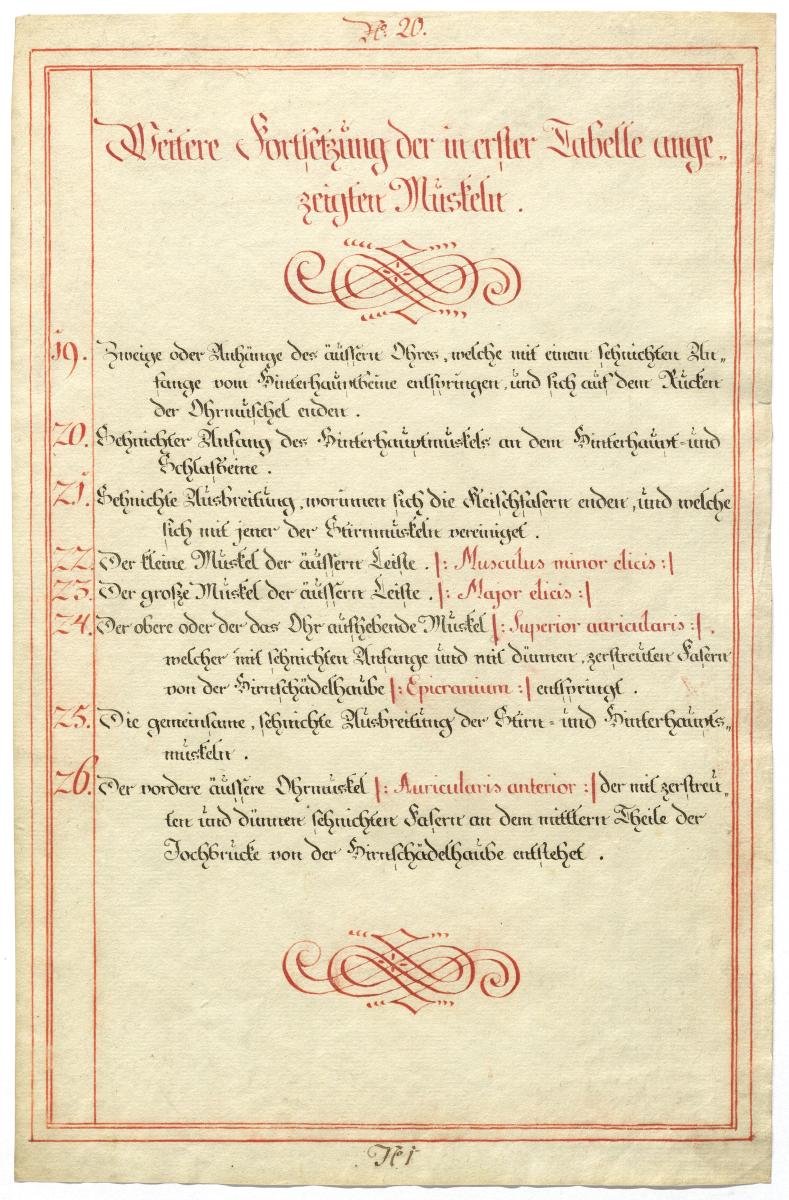 N: 20.
Weitere Fortsetzung der in erster Tabelle ange„
zeigten Muskeln.
19. Zweige oder Anhänge des äussern Ohres, welche mit einem sehnichten An„
fange vom Hinterhauptbeine entspringen, und sich auf dem Rücken
der Ohrmuschel enden.
20. Sehnichter Anfang des Hinterhauptmuskels an dem Hinterhaupt- und
Schlafbeine.
21. Sehnichte Ausbreitung, worinnen sich die Fleischfasern enden, und welche
sich mit jener der Stirnmuskeln vereiniget.
22. Der kleine Muskel der äussern Leiste. |: Musculus minor elicis :|
23. Der große Muskel der äussern Leiste. |: Major elicis :|
24. Der obere oder der das Ohr aufhebende Muskel |: Superior auricularis :|,
welcher mit sehnichten Anfange und mit dünnen, zerstreuten Fasern
von der Hirnschädelhaube |: Epicranium :| entspringt.
25. Die gemeinsame, sehnichte Ausbreitung der Stirn- und Hinterhaupts„
muskeln.
26. Der vordere äussere Ohrmuskel |: Auricularis anterior :| der mit zerstreu„
ten und dünnen sehnichten Fasern an dem mittlern Theile der
Jochbrücke von der Hirnschädelhaube entstehet.